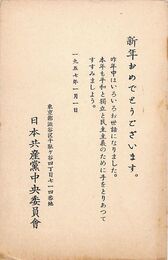 新年おめでとうございます。
昨年中はいろいろお世話になりました。
本年も平和と獨立と民主主義のために手をとりあって
すすみましょう。
一九五七年一月一日
東京都渋谷区千駄ヶ谷四丁目七一四番地
日本共産黨中央委員會